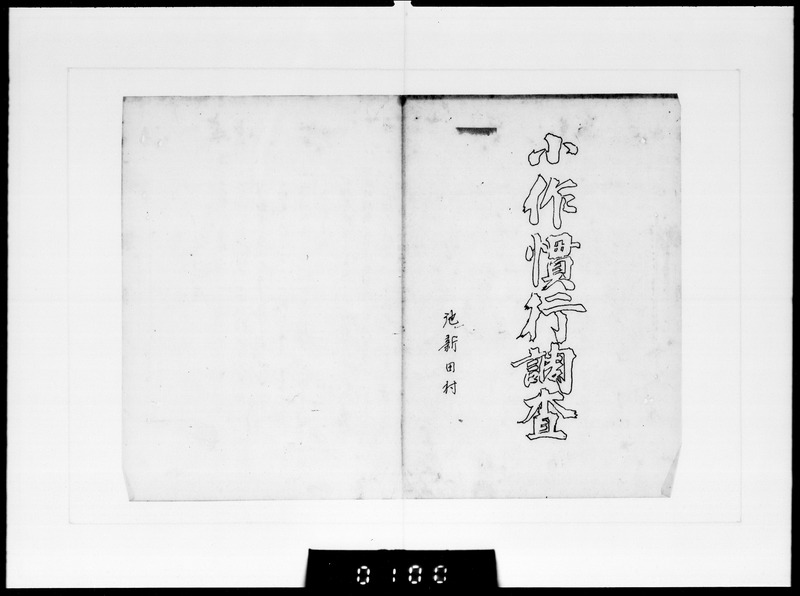 小作慣行調査
池新田村
0100